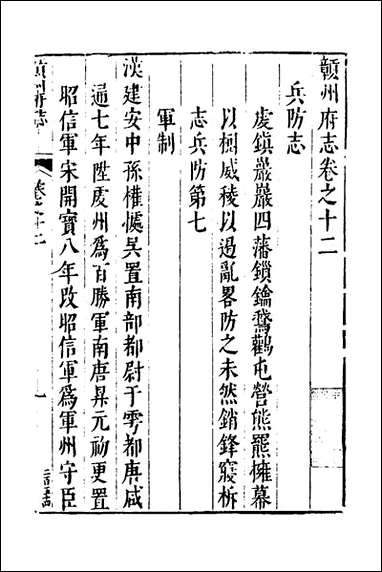 贛州府志卷之十二
兵防志
虔鎮巖巖四藩鎖鑰鵞鸛屯營熊羆擁幕
以樹威稜以遏亂畧防之未然銷鋒寢柝
志兵防第七
軍制
漢建安中孫權據吳置南部都尉于雩都唐咸
通七年陞虔州爲百勝軍南唐昇元初更置
昭信軍宋開寶八年改昭信軍爲軍州守臣